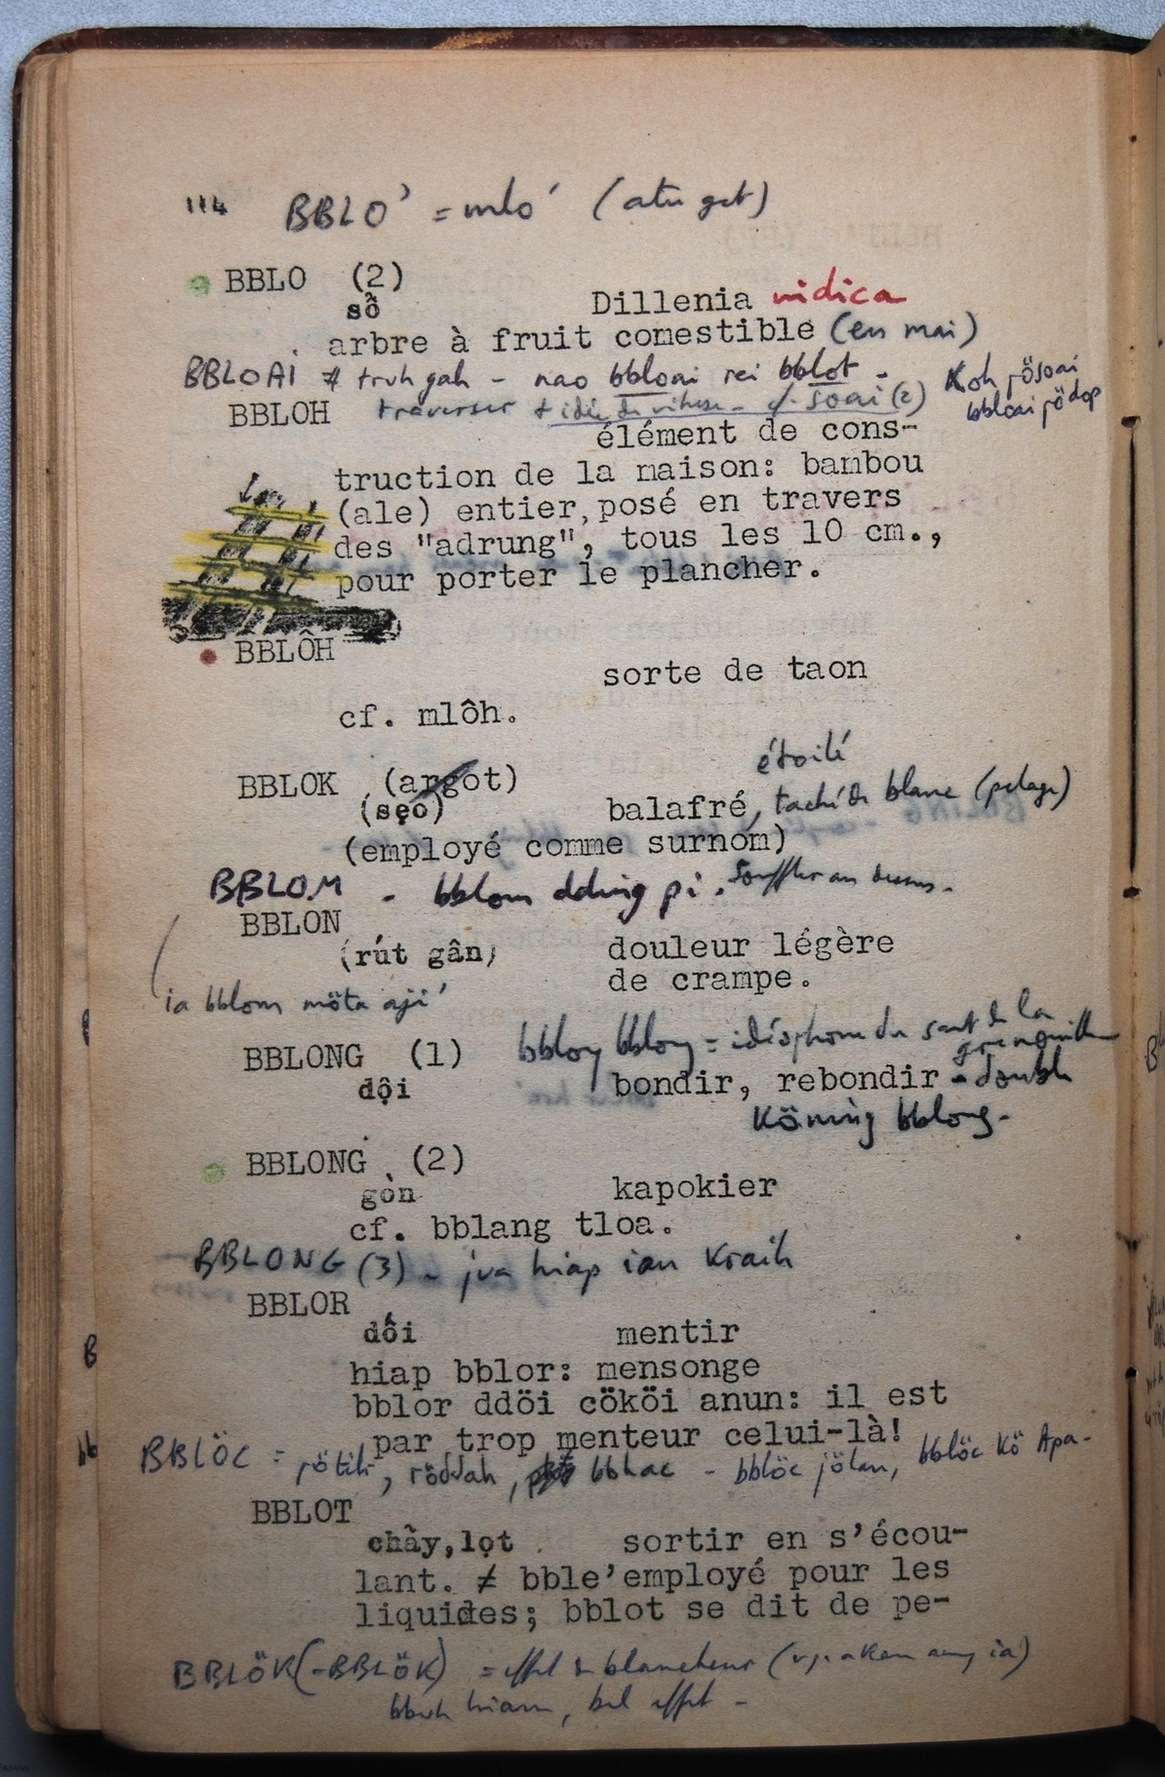 114 BBLO' = mlo' (atu get)
BBLO (2)
sồ Dillenia indica
arbre à fruit comestible (en mai)
BBLOAI ≠ truh gah - nao bbloai rei bblot - Koh jösoai
BBLOH traverser + idée de vitesse - cf. soai (2) bbloai pödop
élément de cons-
truction de la maison: bambou
(ale) entier, posé en travers
des "adrung", tous les 10 cm.,
pour porter le plancher.
BBLÔH
sorte de taon
cf. mlôh.
étoilé
BBLOK (argot)
(sẹo) balafré, taché de blanc (pelage)
(employé comme surnom)
BBLOM - bblom dding pi. Souffler au dessus.
BBLON
(rút gân) douleur légère
de crampe.
ia bblom möta aji'
bblong bblong = idéophone du saut de la
BBLONG (1) grenouille
dội bondir, rebondir - double
Köning bblong.
BBLONG (2)
gòn kapokier
cf. bblang tloa.
BBLONG (3) - jua hiap ian Kraih
BBLOR
dối mentir
hiap bblor: mensonge
bblor ddöi cököi anun: il est
par trop menteur celui-là!
BBLÖC = rötih, röddah, bbhac - bblöc jölan, bblöc kö Apa-
BBLOT
chảy, lọt sortir en s'écou-
lant. ≠ bble' employé pour les
liquides; bblot se dit de pe-
BBLÖK (-BBLÖK) = effet de blancheur ( akan ia)
bbuh hiam, bel effet -